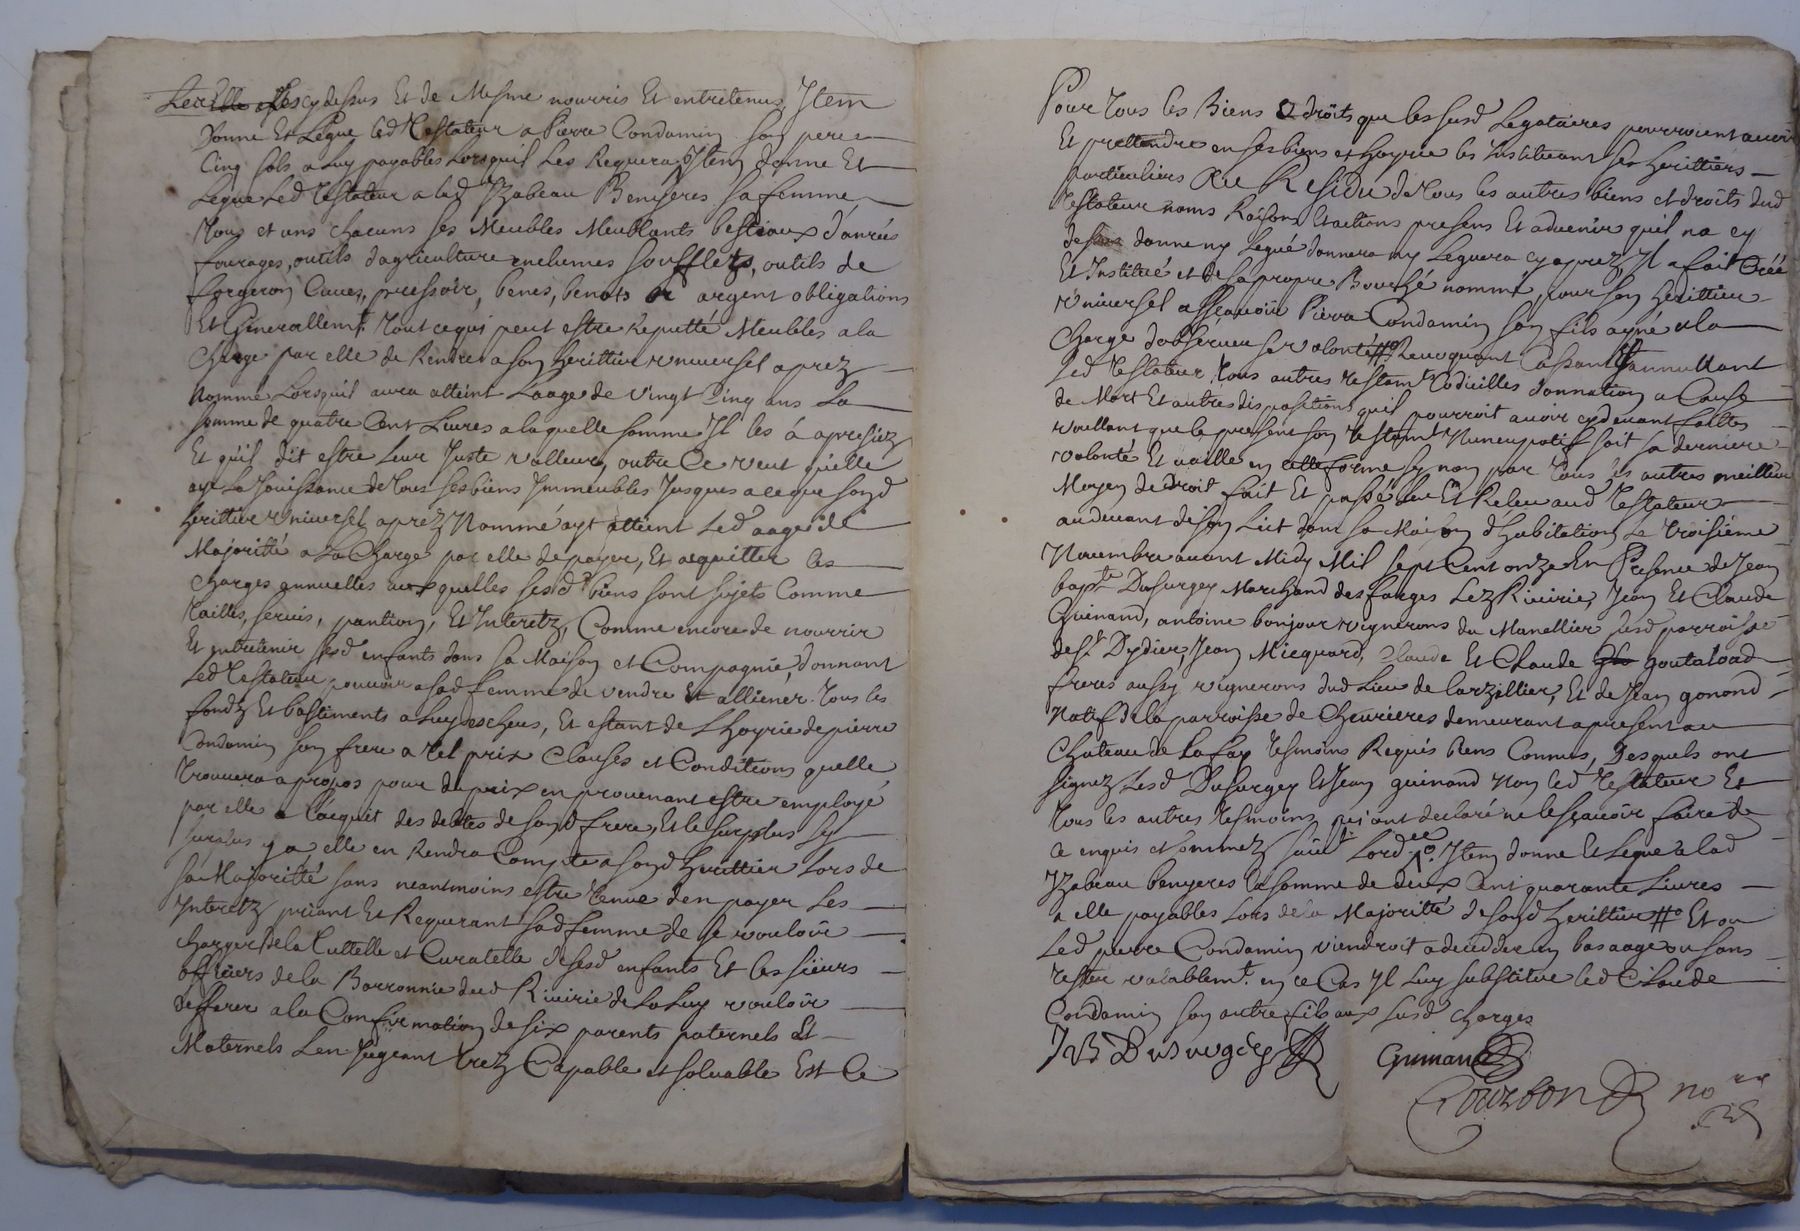 cy dessus Et de Mesme nourris Et entretenus, Item
Donne Et Legue led Testateur a Pierre Condamin son pere
Cinq sols a Luy payables Lorsquil Les Requerra, Item donne Et
Legue Led Testateur a lad Yzabeau Benyeres sa femme
Tous et uns chacuns ses Meubles Meublants bestiaux danrées
fourages, outils dagriculture enclumes soufflets, outils de
forgeron Cuues, pressoir, benes, benots or argent obligations
Et Generallemt. Tout ce qui peut estre Reputté Meubles a la
Charge par elle de Rendre a son herittier vniuersel aprez
Nommé Lorsquil aura atteint Laage de vingt Cinq ans La
somme de quatre Cent Liures a laquelle somme Il les á apresiez
Et qu'il dit estre Leur Juste valleur, outre Ce veut quelle
aye La Jouissance de Tous ses biens Immeubles Jusques a ce que sond
herittier vniuersel aprez Nommé ayt atteint Led aage de
Majoritté a La Charge par elle de payer, Et acquitter les
Charges annuelles auxquelles sesd biens sont sujets Comme
Tailles, seruis, pantion, Et Interetz, Comme encore de nourrir
Et entretenir sesd enfants dans sa Maison et Compagnie, donnant
Led Testateur pouuoir a sad femme de vendre Et alliener Tous les
fondz Et bastiments a Luy escheus, Et estant de Lhoyrie de pierre
Condamin son frere a Tel prix Clauses et Conditions quelle
Trouuera a propos pour du prix en prouenant estre employé
par elle a lacquit des debtes de sond frere, Et le surplus sy
surplus y a elle en Rendra Compte a sond herittier Lors de
sa Majoritté sans neantmoins estre Tenue den payer Les
Interetz priant Et Requerant sad femme de se vouloir
charger de la Tuttelle et Curatelle desesd enfants Et les sieurs
officiers de la Barronnie dud Riuirie de La Luy vouloir
defferer a la Confirmation de six parents paternels Et
Maternels Len Jugeant Trez Capable et soluable Est Ce
Pour Tous les Biens & droits que les susd Legataires pourroient auoir
Et prettendre en ses biens et hoyrie les Instituant ses herittiers
particuliers Au Residu de Tous les autres biens et droits dud
Testateur noms Raisons Et actions presens Et aduenir quil na cy
dessus donne ny Legué donnera ny Leguera cy aprez, Il a fait Créé
Et Institué et de sa propre Bouche nommé, pour son herittier
vniuersel assçauoir Pierre Condamin son fils ayné a la
Charge dobseruer sa volonté # Reuoquant Cassant Et annullant
Led Testateur Tous autres Testamt Codicilles donnation a Cause
de Mort Et autres dispositions quil pourroit auoir cy deuant faittes
voullant que le present son Testamt Nuncupatif soit sa derniere
volonté Et vaille en cette forme sy non par Tous les autres meilleur
Moyen de droit fait Et passé Leu Et Releu aud Testateur
au deuant de son Lict dans sa Maison dhabitation Le Troisieme
Nouembre auant Midy Mil sept Cent onze En Presence de Jean
bapte Dusurgey Marchand des farges Lez Riuirie, Jean Et Claude
Guinand, antoine bonjour vignerons du Manellier susd parroisse
de St Dydier, Jean Micquard, Claude Et Claude goutaload
freres aussy vignerons dud Lieu de Larzillier, Et de Jean gonond
Natif de la parroisse de Cheurieres demeurant a present au
Chateau de La fay Tesmoins Requis biens Connus, Desquels ont
signez Lesd Dusurgey Et Jean guinand Non led Testateur Et
Tous les autres Tesmoins qui ont declaré ne le sçauoir faire de
Ce enquis et sommez suiut Lord.ce # Item donne Et Legue a lad
Yzabeau benyeres la somme de deux Cent quarante Liures
a elle payables Lors de la Majoritté de sond herittier # Et ou
Led pierre Condamin viendroit a decedder en bas aage ou sans
Tester valablemt. en ce Cas Il Luy substitue led Claude
Condamin son autre fils aux susd charges
JB Dusurgey Guinand
Courbon no re